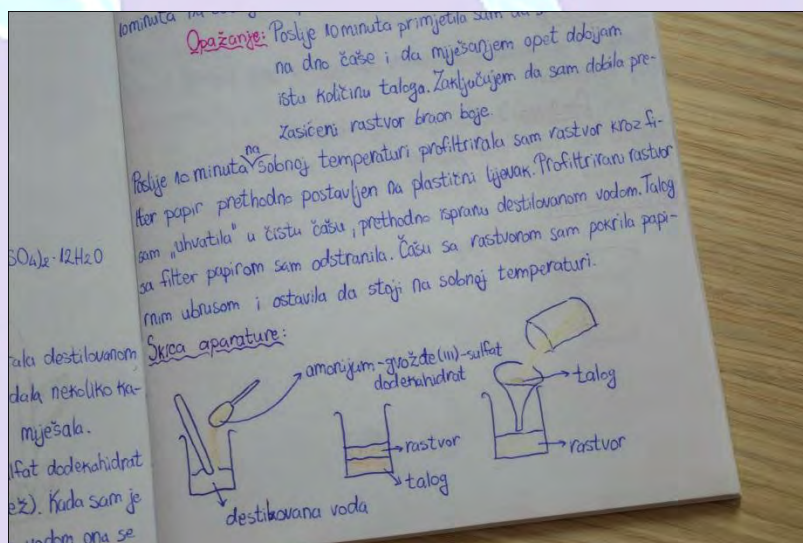 10minuta na
Opažanje: Poslije 10 minuta primjetila sam da
na dno čaše i da miješanjem opet dobijam
istu količinu taloga. Zaključujem da sam dobila pre-
zasićeni rastvor braon boje.
na
Poslije 10 minuta sobnoj temperaturi profiltrirala sam rastvor kroz fi-
lter papir prethodno postavljen na plastični lijevak. Profiltrirani rastvor
sam „uhvatila" u čistu čašu, prethodno ispranu destilovanom vodom. Talog
sa filter papirom sam odstranila. Čašu sa rastvorom sam pokrila papi-
rnim ubrusom i ostavila da stoji na sobnoj temperaturi.
Skica aparature:
amonijum-gvožđe(III)-sulfat
dodekahidrat
destilovana voda
rastvor
talog
talog
rastvor
SO4)2·12H2O
ala destilovanom
dala nekoliko ka-
miješala.
lfat dodekahidrat
ež). Kada sam je
vodom ona se